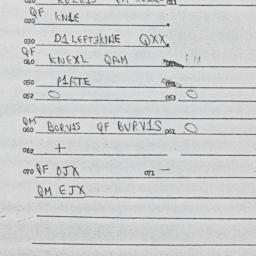 QF
020 KN1E
030 D1LEFT3KN1E QXX
QF
040 KNEXL QAM
050 P1RTE
052 O 053 O
QM
060 BORV1S QF BURV1S 061 O
062 +
070 QF OJX 072 —
QM EJX